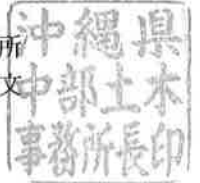 所
文
沖縄県
中部土木
事務所長印